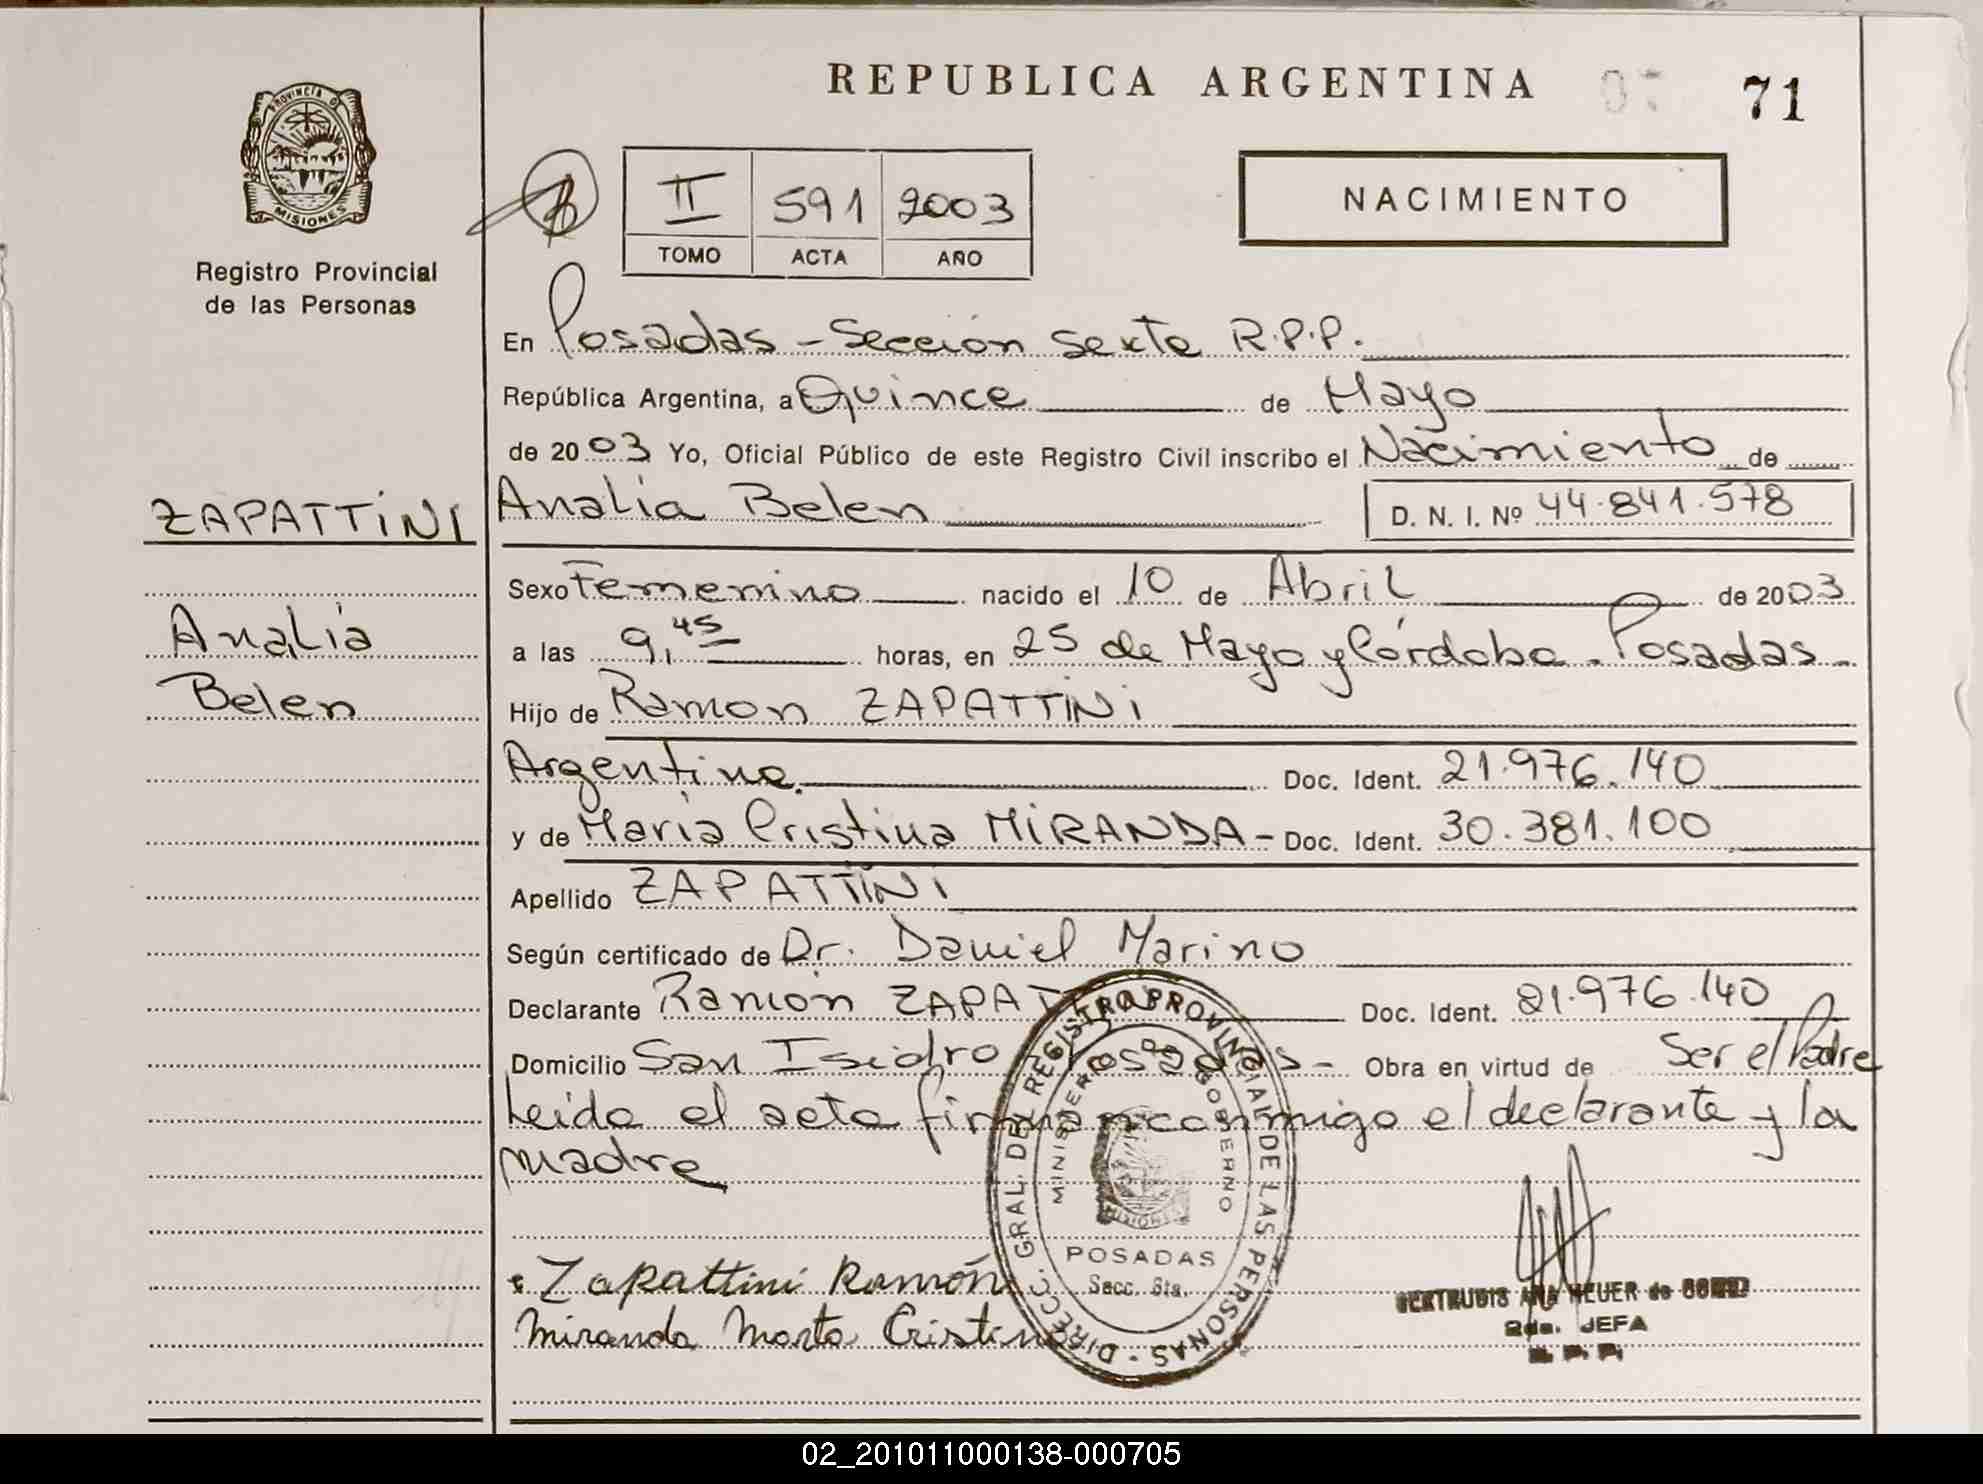 REPUBLICA ARGENTINA
71
PROVINCIA D
MISIONES
Registro Provincial
de las Personas
II 591 2003
TOMO ACTA AÑO
NACIMIENTO
En Posadas - Sección Sexta R.P.P.
República Argentina, a Quince de Mayo
de 2003 Yo, Oficial Público de este Registro Civil inscribo el Nacimiento de
ZAPATTINI
Analia Belen D. N. I. Nº 44.841.578
Sexo Femenino nacido el 10 de Abril de 2003
Analia
a las 9,45 horas, en 25 de Mayo y Córdoba - Posadas -
Belen
Hijo de Ramon ZAPATTINI
Argentino Doc. Ident. 21.976.140
y de María Cristina MIRANDA - Doc. Ident. 30.381.100
Apellido ZAPATTINI
Según certificado de Dr. Daniel Marino
Declarante Ramón ZAPATTINI Doc. Ident. 21.976.140
Domicilio San Isidro Posadas - Obra en virtud de Ser el Padre
Leida el acta firman conmigo el declarante y la
madre
DIRECC. GRAL. DEL REGISTRO PROVINCIAL DE LAS PERSONAS -
MINISTERIO DE GOBIERNO
MISIONES
POSADAS
Secc. 6ta.
Zapattini Ramón
Miranda Maria Cristina
GERTRUDIS ANA HEUER de
2da. JEFA
R. P. P.
02_201011000138-000705